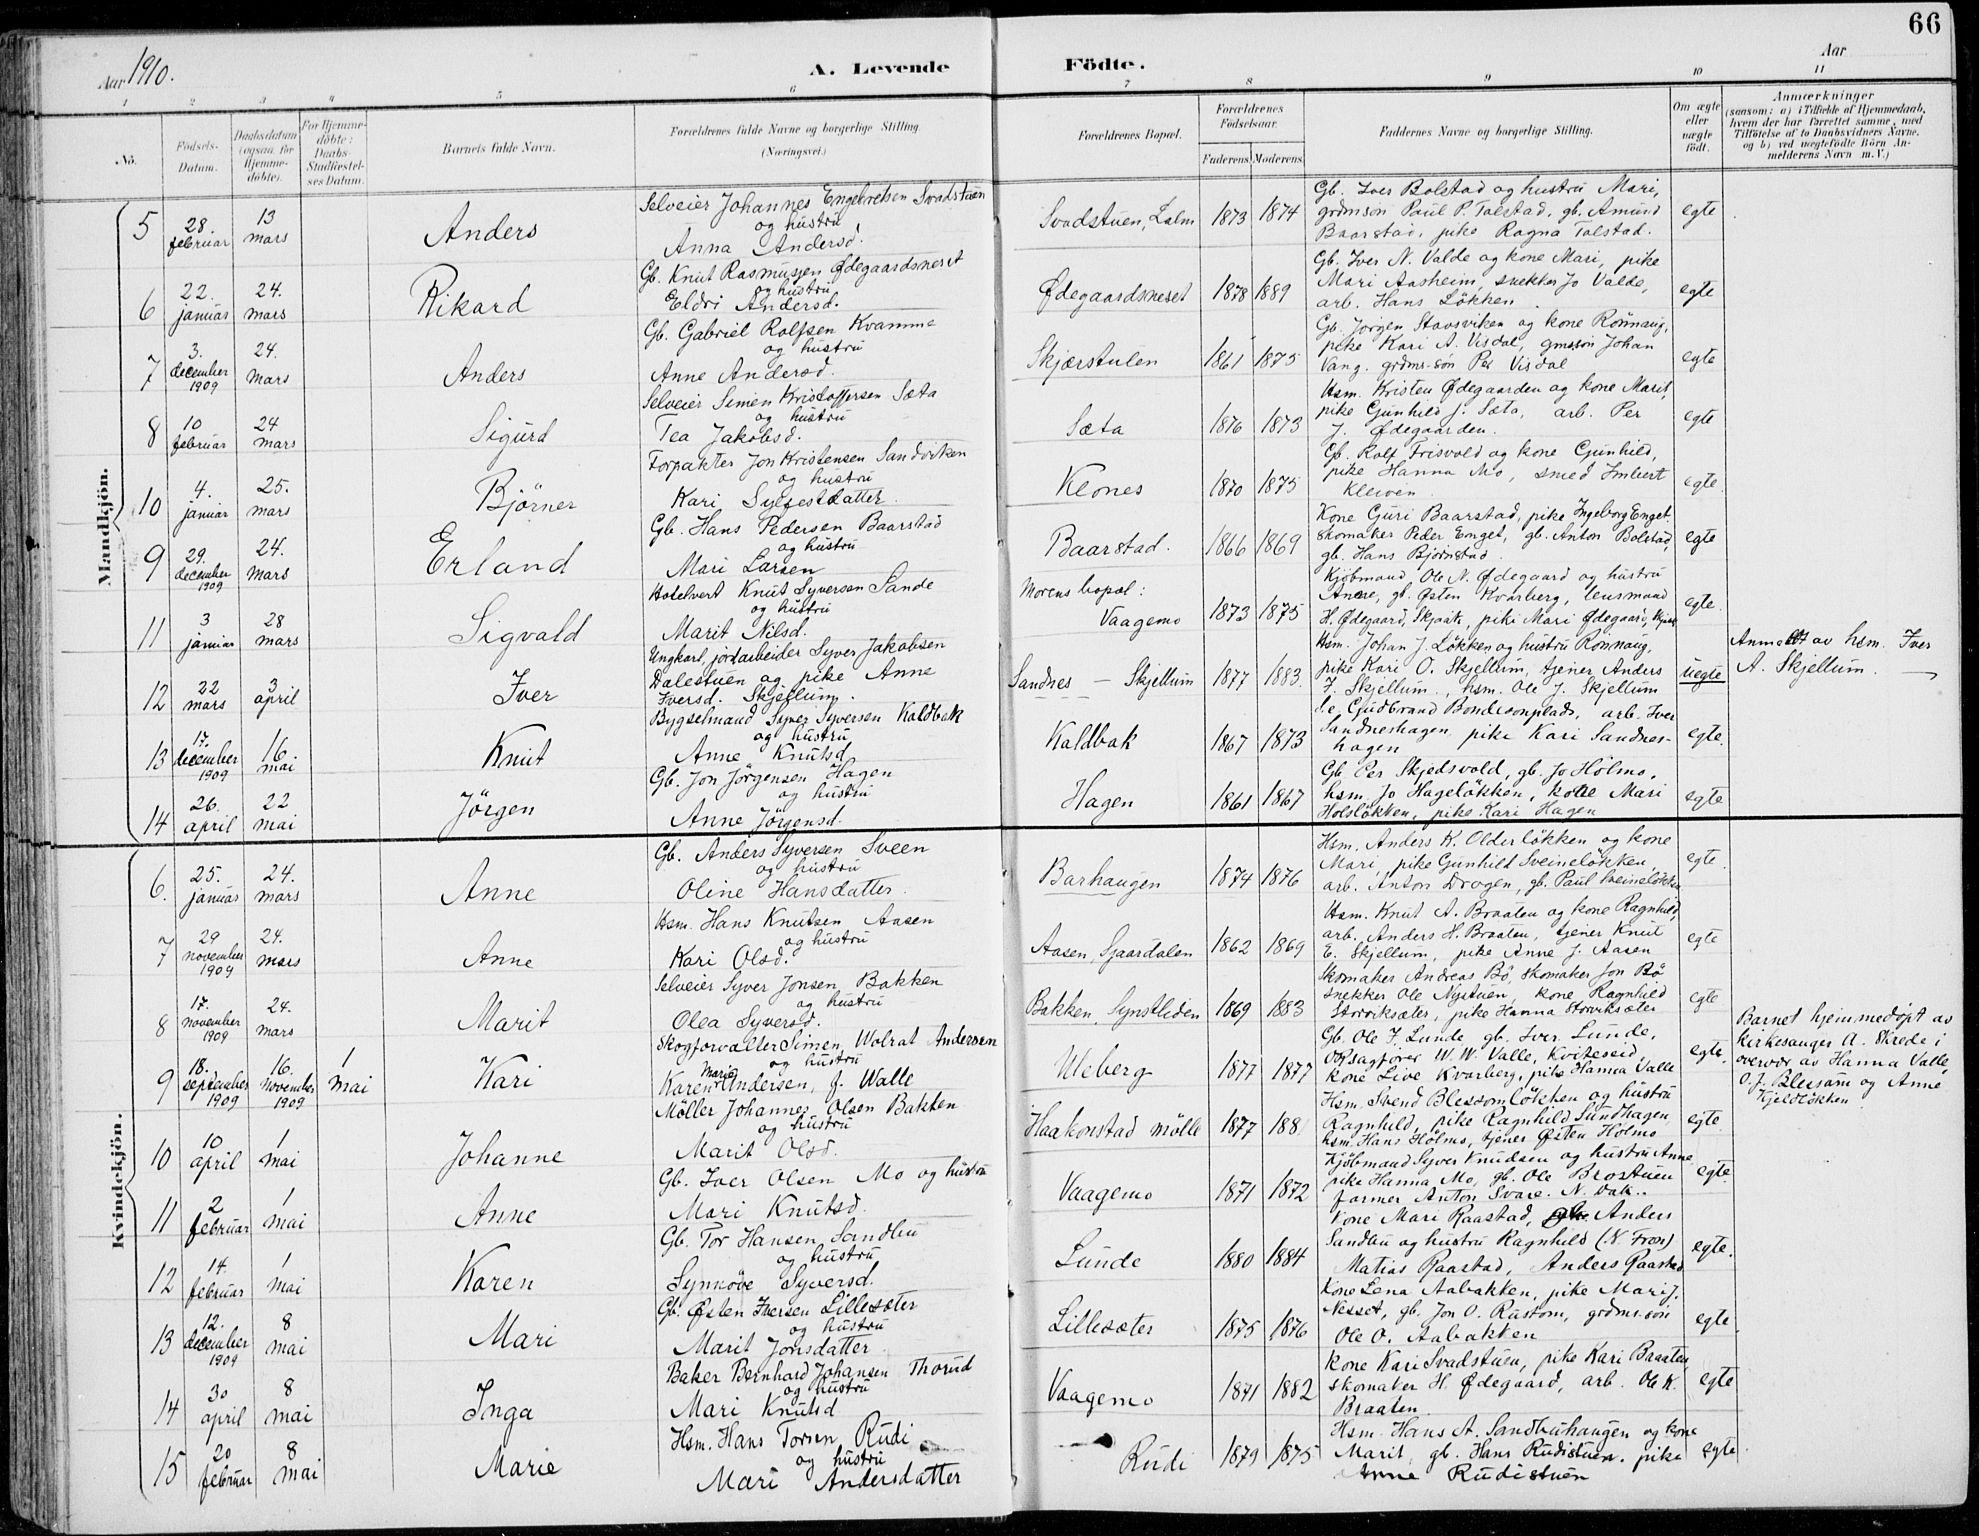 66
Aar 1910.
A. Levende
Födte.
Aar
1 2 3 4 5 6 7 8 9 10 11
No.
Födsels-Datum.
Daabsdatum (ogsaa for Hjemme-döbte).
For Hjemme-döbte: Daabs-Stadfæstel-ses Datum.
Barnets fulde Navn.
Forældrenes fulde Navne og borgerlige Stilling. (Næringsvei.)
Forældrenes Bopæl.
Forældrenes Födselsaar.
Faderens. Moderens.
Faddernes Navne og borgerlige Stilling.
Om ægte eller uægte födt.
Anmærkninger
(saasom: a) i Tilfælde af Hjemmedaab, hvem der har forrettet samme, med Tilföielse af to Daabsvidners Navne, og b) ved uægtefödte Börn An-melderens Navn m. V.)
Mandkjön.
5 28. februar 13 mars Anders Selveier Johannes Engebretsen Svadstuen og hustru Anna Andersd. Svadstuen, Lalm 1873 1874 Gb. Iver Bolstad og hustru Mari, grdmsøn Paul P. Tolstad, gb. Amund Baarstad, pike Ragna Tolstad. egte
6 22. januar 24. mars Rikard Gb. Knut Rasmussen Ødegaardsneset og hustru Eldri Andersd. Ødegaardsneset 1878 1889 Gb. Iver N. Valde og kone Mari, pike Mari Aasheim, snekker Jo Valde, arb. Hans Løkken. egte
7 3. december 1909 24. mars Anders Gb. Gabriel Rolfsen Kvamme og hustru Anne Andersd. Skjærstulen 1861 1875 Gb. Jørgen Stavsviken og kone Rønnaug, pike Kari A. Visdal, gmssøn Johan Vang, grdms-søn Per Visdal egte
8 10 februar 24 mars Sigurd Selveier Simen Kristoffersen Sæta og hustru Tea Jakobsd. Sæta 1876 1873 Hsm. Kristen Ødegaarden og kone Marit, pike Gunhild J. Sæta, arb. Per J. Ødegaarden. egte
10 4. januar 25. mars Björner Forpakter Jon Kristensen Sandviken og hustru Kari Sylfestdatter. Klones 1870 1875 Gb. Rolf Frisvold og kone Gunhild, pike Hanna Mo, smed Imbert Kleiven. egte
9 29. december 1909 24. mars Erland Gb. Hans Pedersen Baarstad og hustru Mari Larsen Baarstad. 1866 1869 Kone Guri Baarstad, pike Ingeborg Enget. Skomaker Peder Enget, gb. Anton Bolstad, gb. Hans Bjørnstad. egte
11 3 januar 28 mars Sigvald Hotelvert Knut Syversen Sande og hustru Marit Nilsd. Morens bopæl: Vaagemo 1873 1875 Kjøbmand Ole N. Ødegaard og hustru Anne, gb. Østen Kvarberg, lensmand H. Ødegaard, Skjaak, pike Mari Ødegaard, Skjaak egte.
12 22 mars 3 april Iver Ungkarl, jordarbeider Syver Jakobsen Dalestuen og pike Anne Iversd. Skjellum. Sandnes — Skjellum 1877 1883. Hsm. Johan J. Løkken og hustru Rønnaug, pike Kari O. Skjellum, tjener Anders I. Skjellum, hsm. Ole J. Skjellum uegte Anmeldt av hsm. Iver A. Skjellum.
13 17. december 1909 16. mai Knut Bygselmand Syver Syversen Kaldbak og hustru Anne Knutsd. Kaldbak 1867 1873 Gudbrand Bondesonplads, arb. Iver Sandneshagen, pike Kari Sandnes-hagen egte.
14 26. april 22 mai Jörgen Gb. Jon Jørgensen Hagen og hustru Anne Jørgensd. Hagen 1861 1867 Gb. Per Skjedsvold, gb. Jo Holmo, hsm. Jo Hageløkken, kone Mari Holsløkken, pike Kari Hagen egte
Kvindekjön.
6. 25. januar 24. mars Anne Gb. Anders Syversen Sveen og hustru Oline Hansdatter. Barhaugen 1874 1876 Hsm. Anders K. Olderløkken og kone Mari, pike Gunhild Sveineløkken, arb. Anton Drogen, gb. Paul Sveineløkken egte.
7 29 november 1909 24. mars Anne Hsm. Hans Knutsen Aasen og hustru Kari Olsd. Aasen, Sjaardalen 1862 1869 Hsm. Knut A. Braaten og kone Ragnhild, arb. Anders H. Braaten, tjener Knut E. Skjellum, pike Anne J. Aasen egte
8 17. november 1909 24. mars Marit Selveier Syver Jonsen Bakken og hustru Olea Syversd. Bakken, Synstliden 1869 1883 Skomaker Andreas Bö, skomaker Jon Bö snekker Ole Nystuen, kone Ragnhild Storviksæter, pike Hanna Storviksæter egte
9 18. september 1909 16. november 1909 1 mai Kari Skogforvalter Simen Wolrat Andersen og hustru Karen Marie Andersen, f. Walle Uleberg 1877 1877 Gb. Ole I. Lunde, gb. Iver Lunde, Opsagfører W. W. Valle, Kviteseid, kone Live Kvarberg, pike Hanna Valle egte. Barnet hjemmedøpt av kirkesanger A. Skrede i overvær av Hanna Valle, O. J. Blessom og Anne Fjeldløkken.
10 10 april 1 mai Johanne Møller Johannes Olsen Bakken og hustru Marit Olsd. Haakenstad mølle 1877 188 Hsm. Svend Blessomløkken og hustru Ragnhild, pike Ragnhild Sundhagen, hsm. Hans Holmo, tjener Østen Holmo egte.
11 2 februar 1 mai Anne Gb. Iver Olsen Mo og hustru Mari Knutsd. Vaagemo 1871 1872 Kjøbmand Syver Knudsen og hustru Anne pike Hanna Mo, gb. Ole Brostuen farmer Anton Svare. N. Dak.. egte.
12 14 februar 1 mai Karen Gb. Tor Hansen Sandbu og hustru Synnöve Syversd. Lunde 1880 1884 Kone Mari Raastad, Anders Sandbu og hustru Ragnhild (N. Fron) Matias Raastad, Anders Raastad egte.
13 12. december 1909 8 mai Mari Gb. Østen Iversen Lillesæter og hustru Marit Jonsdatter. Lillesæter 1875 1876 Kone Lena Aabakken, pike Mari J. Nesset, gb. Jon O. Rustom, grdms.søn Ole O. Aabakken egte.
14 30 april 8 mai Inga Baker Bernhard Johansen Thorud og hustru Mari Knutsd Vaagemo 1871 1882 Kone Kari Svadstuen, pike Kari Braaten skomaker H. Ødegaard, arb. Ole K. Braaten egte
15 20 februar 8 mai Marie Hsm. Hans Torsen Rudi og hustru Mari Andersdatter Rudi 1879 1875 Hsm. Hans A. Sandbuhaugen og kone Marit, gb. Hans Rudistuen, pike Anne Rudistuen egte